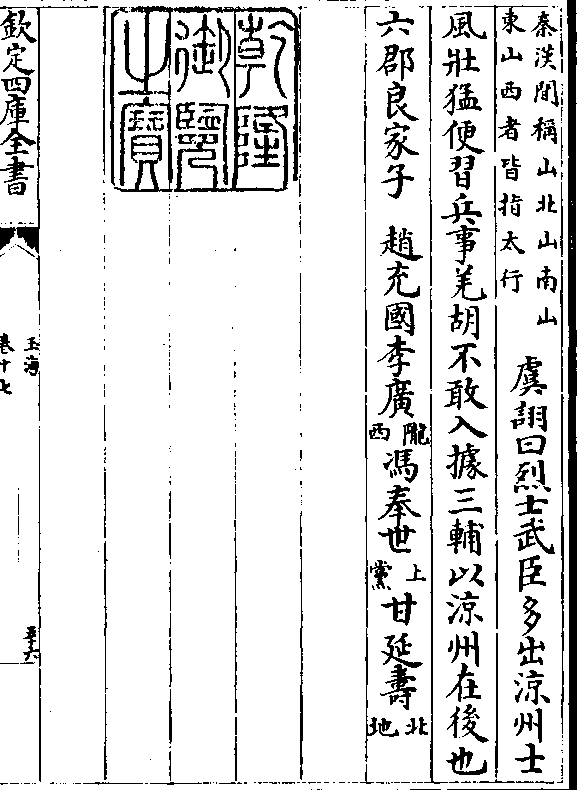 秦漢間稱山北山南山
東山西者皆指太行
虞詡曰烈士武臣多出涼州士
風壯猛便習兵事羌胡不敢入據三輔以涼州在後也
六郡良家子 趙充國李廣隴西馮奉世上黨甘延壽北地
乾隆御覽之寶
欽定四庫全書
玉海
卷十七
三十六